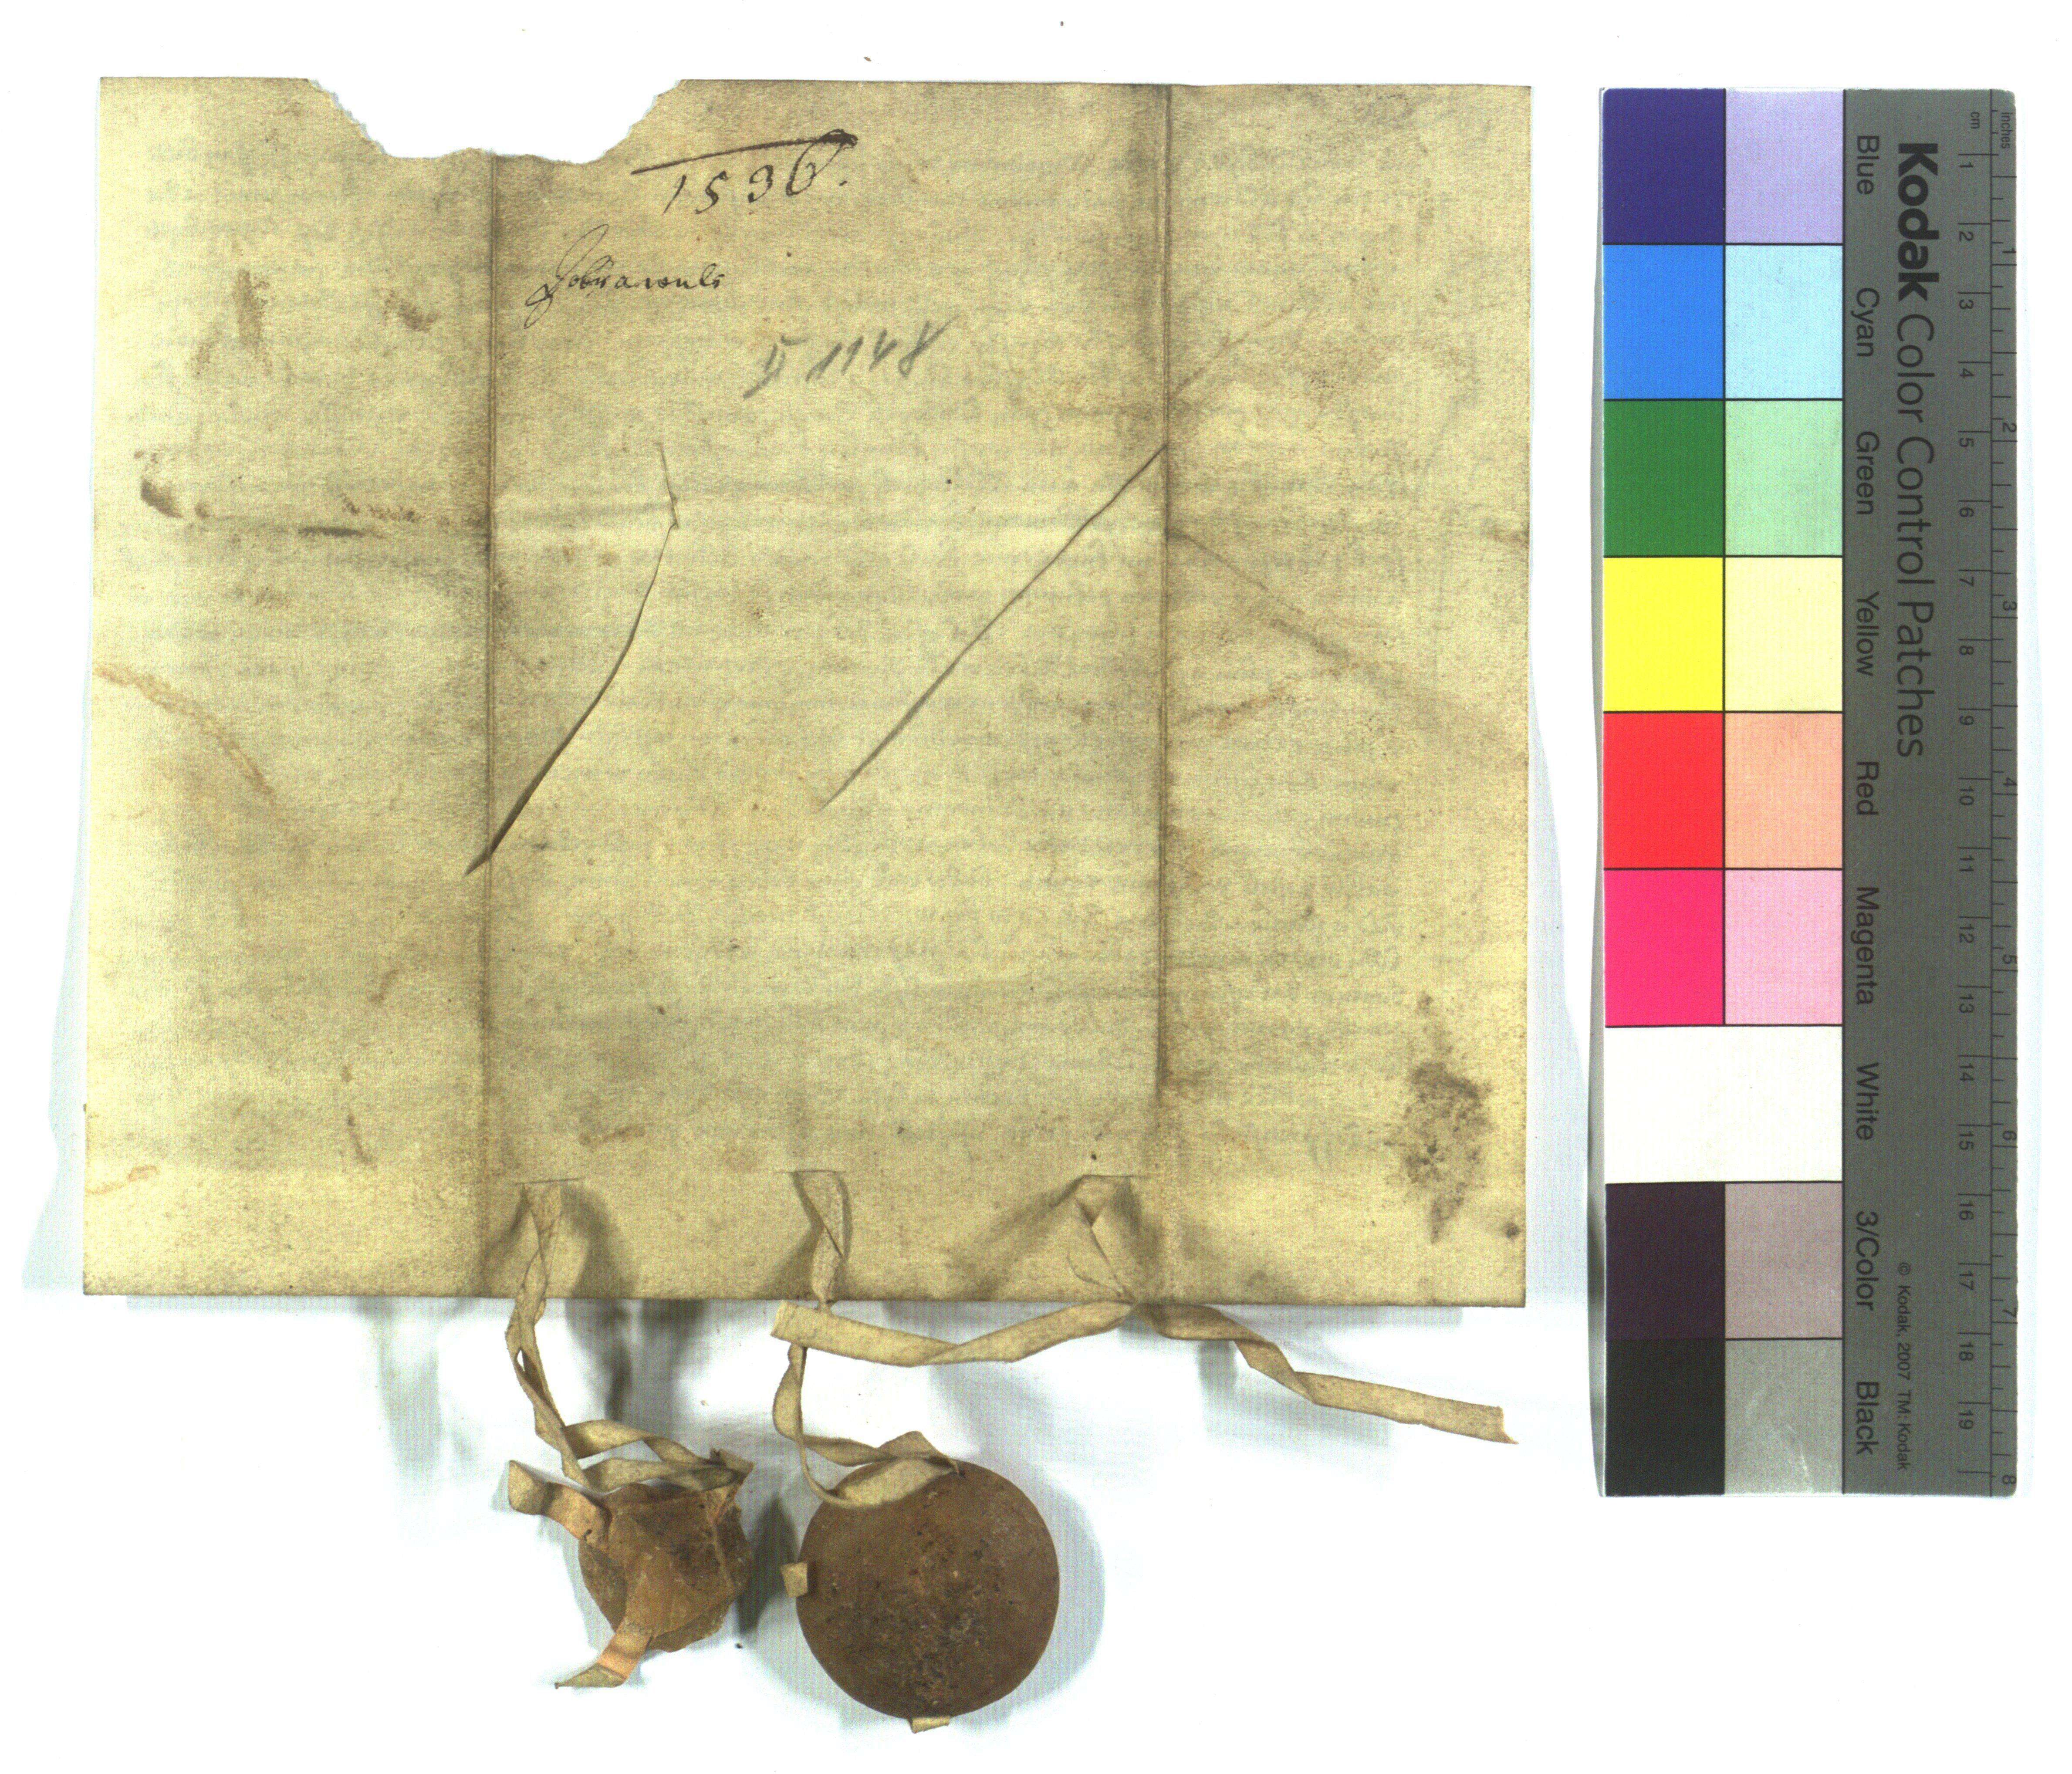 1536.
II 1148
Kodak Color Control Patches
Blue Cyan Green Yellow Red Magenta White 3/Color Black
© Kodak, 2007 TM: Kodak
cm 1 2 3 4 5 6 7 8 9 10 11 12 13 14 15 16 17 18 19
inches 1 2 3 4 5 6 7 8